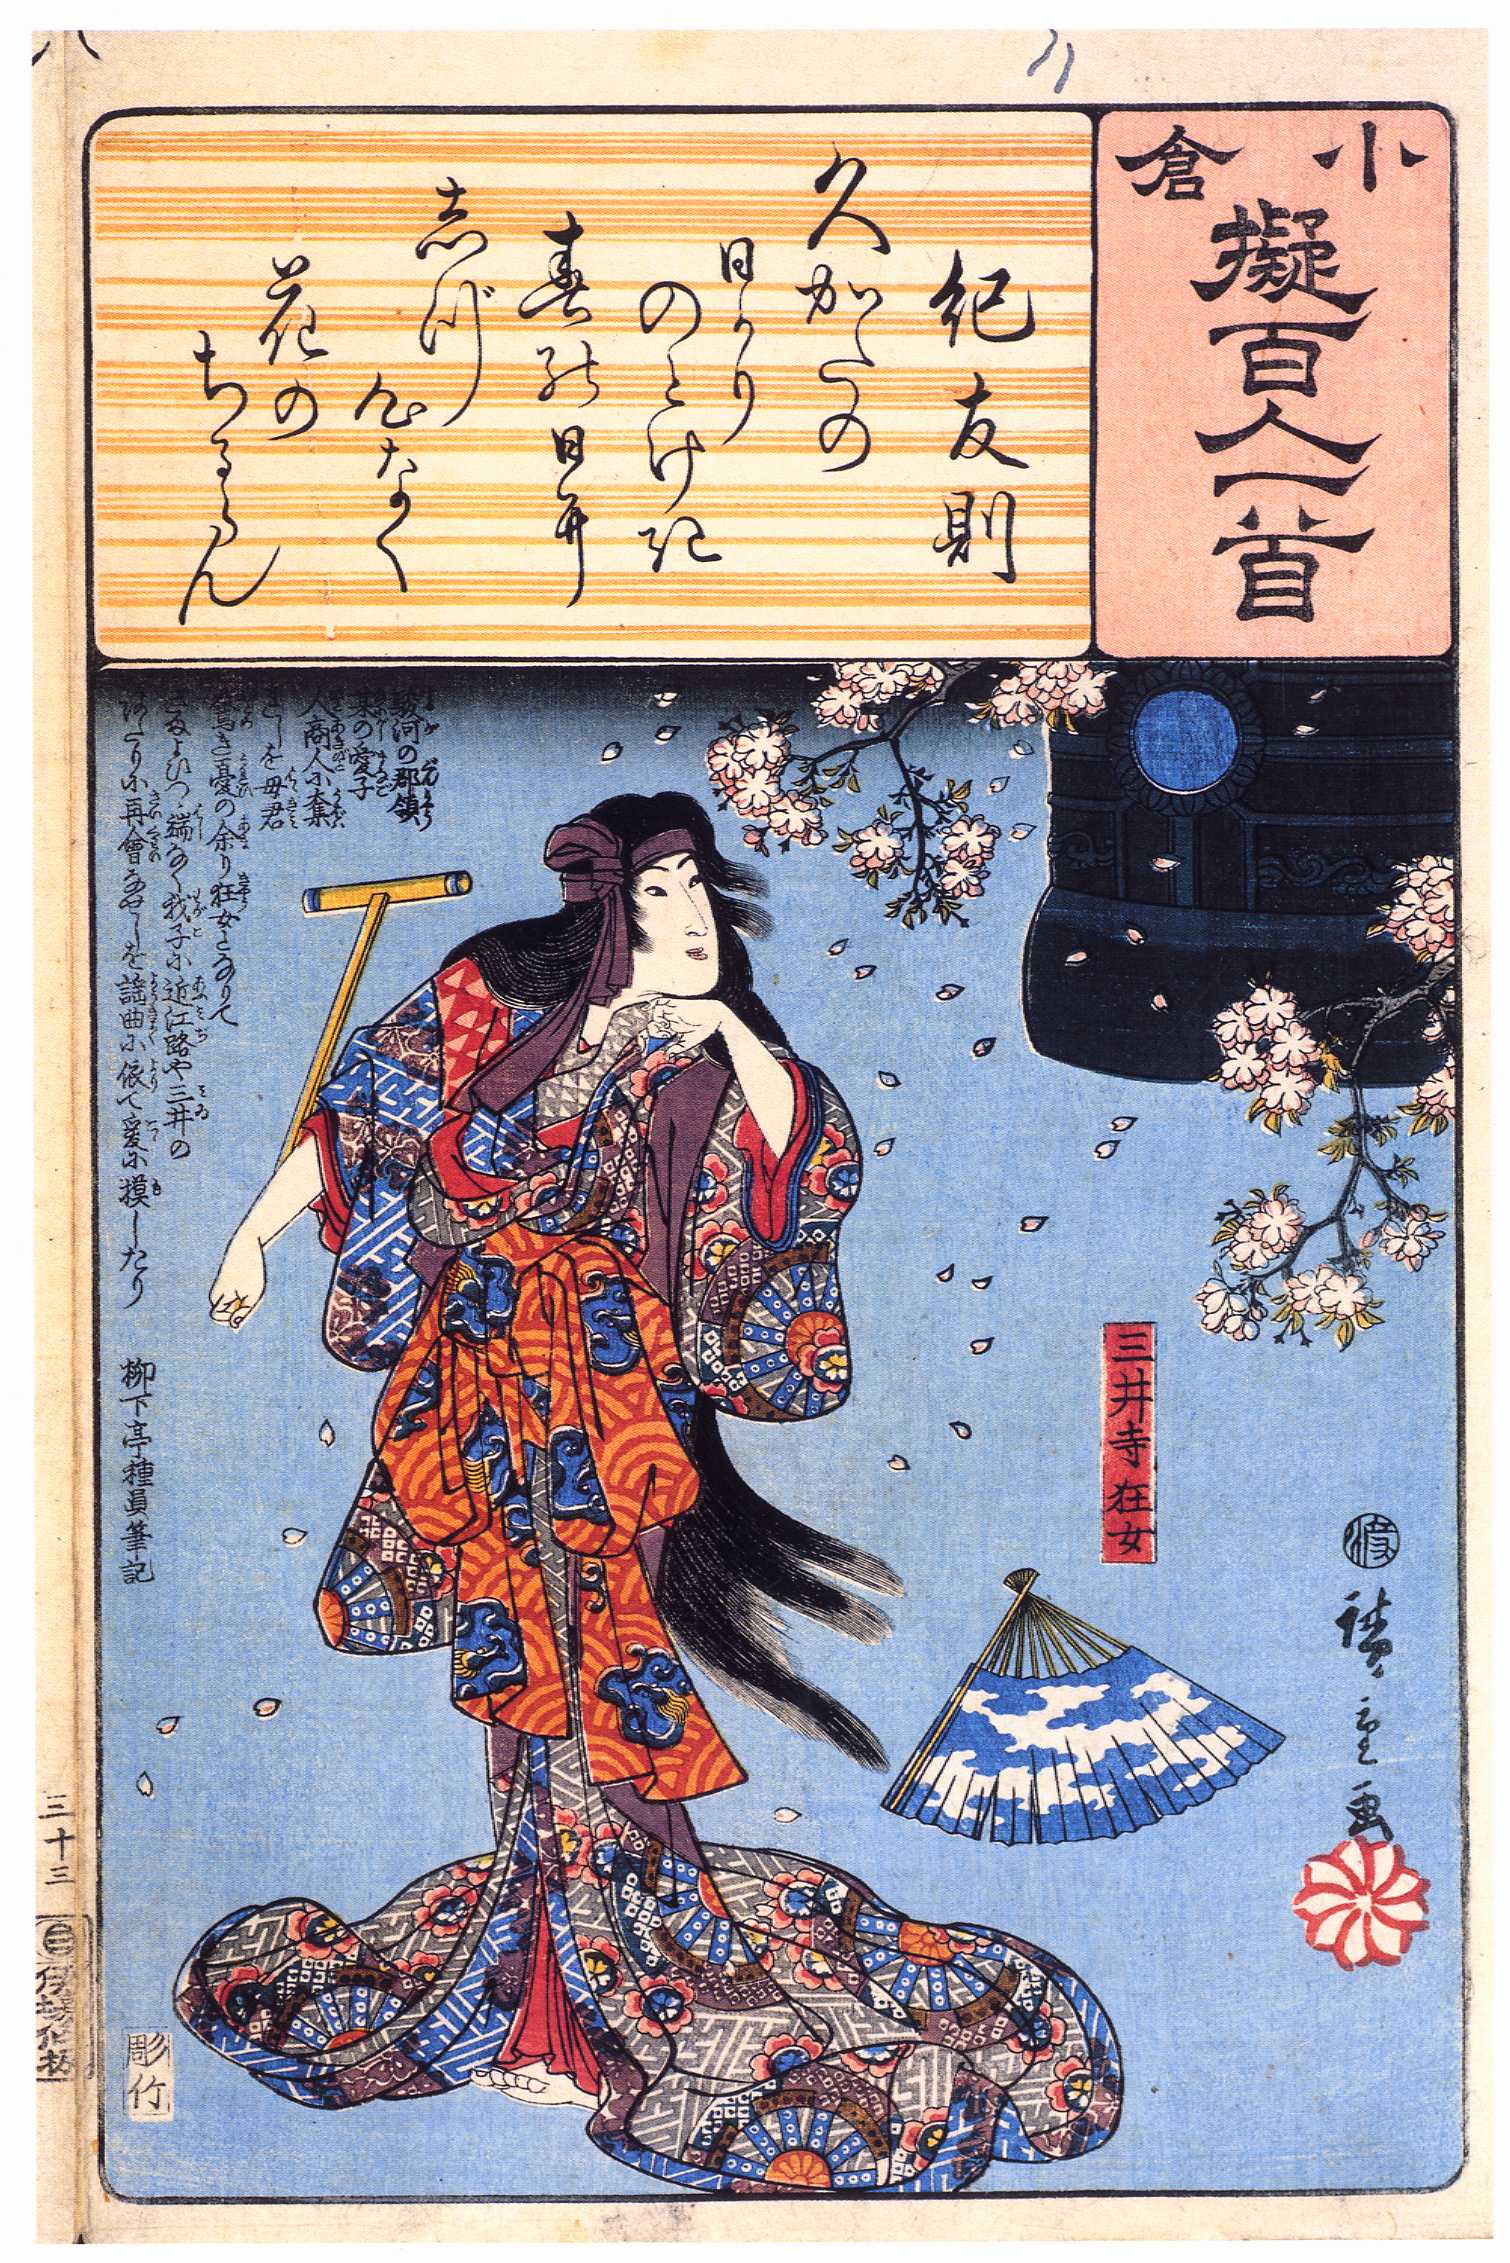 小倉
擬百人一首
紀友則
久かたの
日かり
のとけき
春の日に
志づ
心なく
花の
ちるらん
駿河の郡領
某の愛子
人商人に奪
れしを母君
驚き憂の余り狂女となりて
さまよひつゝ端なく我子に近江路や三井の
ほとりに再會なせしを謡曲に依て爰に摸したり
柳下亭種員筆記
三井寺狂女
渡
廣重画
三十三
彫竹